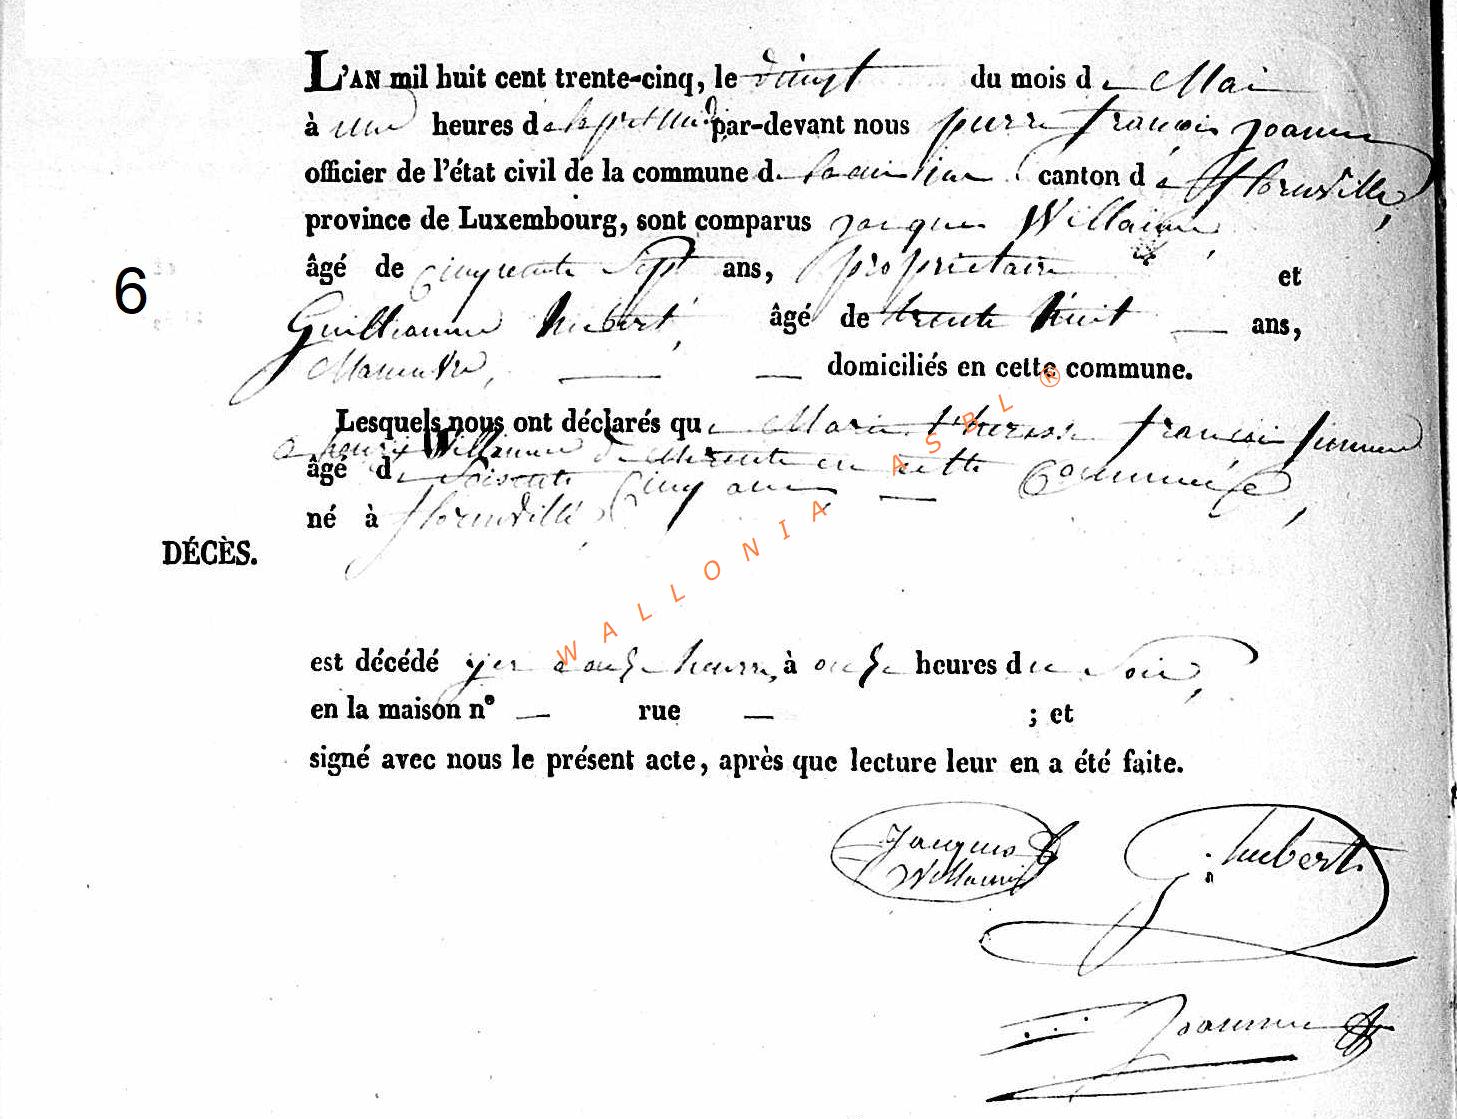 L'AN mil huit cent trente-cinq, le vingt du mois de Mai
à une heures de par-devant nous pierre françois Joanne
officier de l'état civil de la commune d canton de florenville,
province de Luxembourg, sont comparus jacques Willaime,
âgé de cinquante sept ans, propriétaire et
Guilliaume hubert, âgé de trente huit — ans,
— — domiciliés en cette commune.
Lesquels nous ont déclarés que Marie therese francoise
a henri Willaime en cette Commune,
âgé de Soisente Cinq ans —
né à florenville,
6
DÉCÈS.
est décédé yer a onze heures, à onze heures du Soir,
en la maison n° — rue — ; et
signé avec nous le présent acte, après que lecture leur en a été faite.
Jacques
Willaime
G. hubert
Joanne
WALLONIA ASBL ®